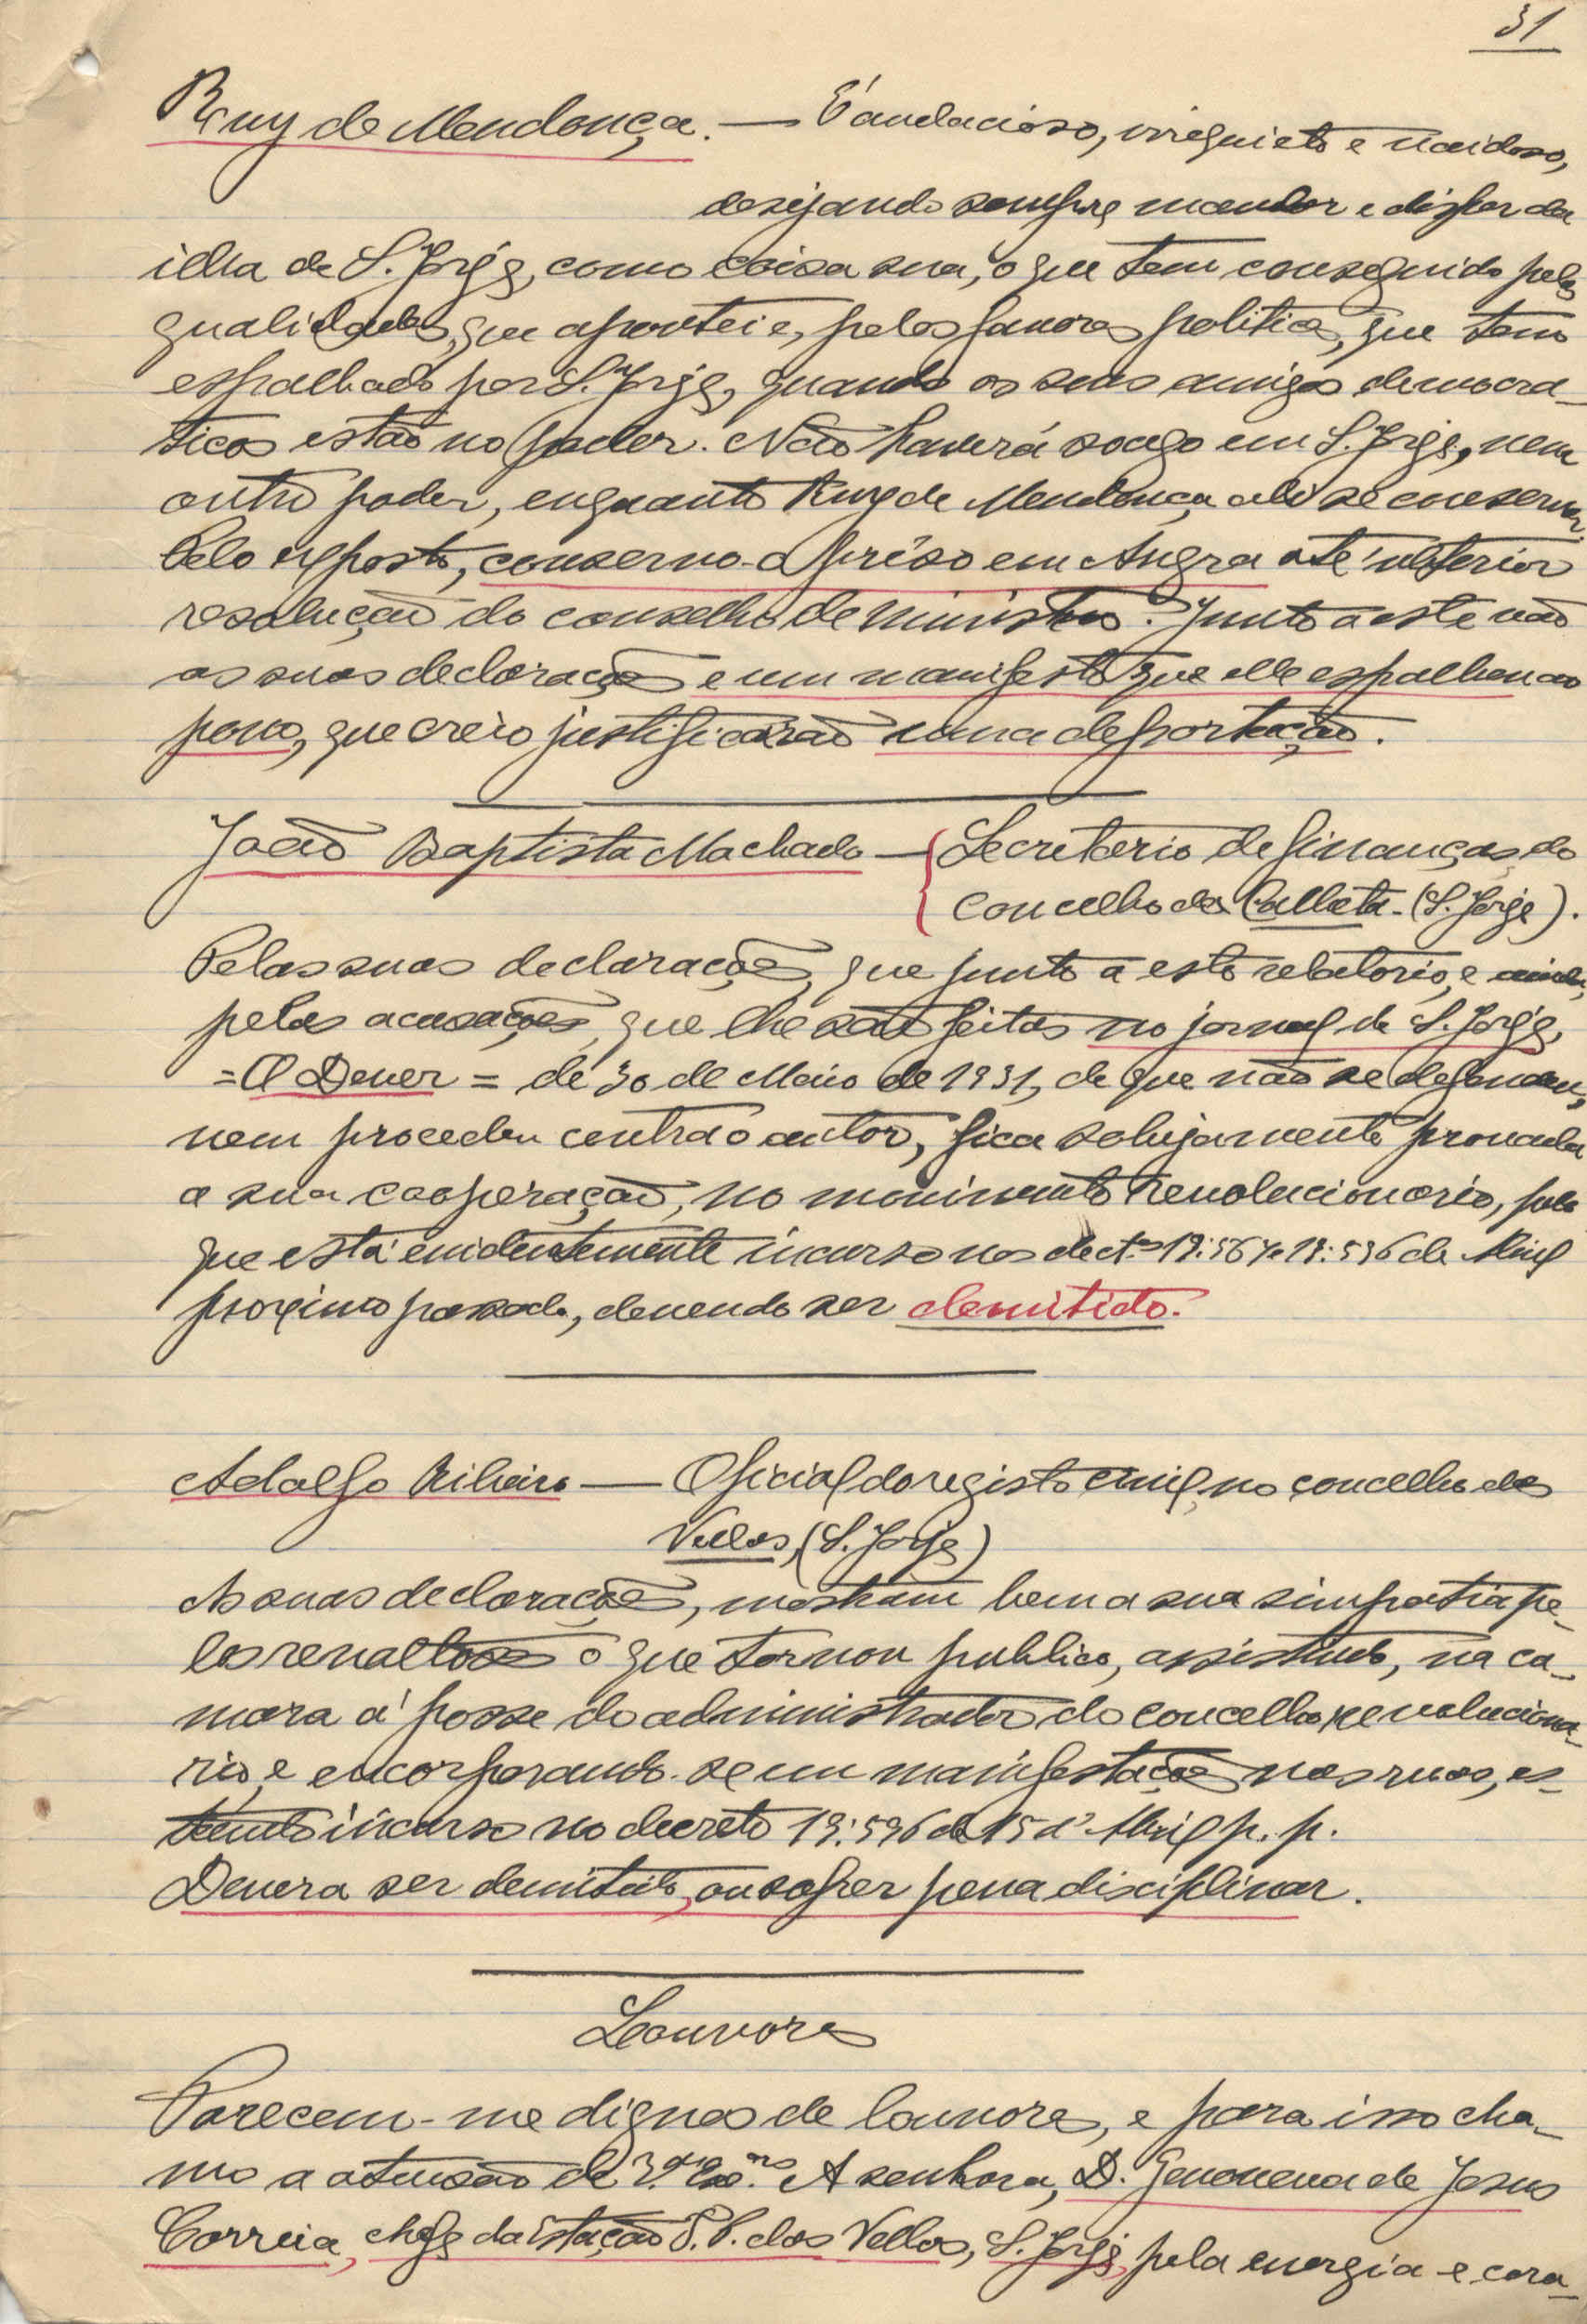 31
Ruy de Mendonça. — É audacioso, irrequieto e vaidoso,
desejando sempre mandar e dispor da
ilha de S. Jorge, como coisa sua, o que tem conseguido pelas
qualidades, que apontei e, pelos favores politicos, que tem
espalhado por S. Jorge, quando os seus amigos democra-
ticos estão no poder. Não haverá socego em S. Jorge, nem
outro poder, enquanto Ruy de Mendonça ali se conservar.
Pelo exposto, conservo-o prêso em Angra até ulterior
resolução do conselho de ministros. Junto a este vão
as suas declarações e um manifesto que elle espalhou ao
povo, que creio justificarão uma deportação.
João Baptista Machado — Secretario de finanças do
concelho da Calheta - (S. Jorge).
Pelas suas declarações, que junto a este relatorio, e ainda,
pelas acusações, que lhe são feitas no jornal de S. Jorge,
= O Dever = de 30 de Maio de 1931, de que não se defendeu,
nem procedeu contra o autor, fica sobejamente provada
a sua cooperação, no movimento revolucionario, pelo
que está evidentemente incurso nos dect.os 19:567 e 19:596 de Abril
proximo passado, devendo ser demitido.
Adolfo Ribeiro — Oficial do registo civil, no concelho das
Vellas, (S. Jorge)
As suas declarações, mostram bem a sua simpatia pe-
los revoltosos o que tornou publico, assistindo, na ca-
mara á posse do administrador do concelho revoluciona-
rio, e encorporando-se em manifestações nas ruas, es-
tando incurso no decreto 19:596 de 15 d'Abril p. p.
Devera ser demitido, ou sofrer pena disciplinar.
Louvores
Parecem-me dignos de louvores, e para isso cha-
mo a atensão de V.as Ex.as A senhora, D. Genoveva de Jesus
Correia, chefe da Estação T. P. das Vellas, S. Jorge, pela energia e cora-